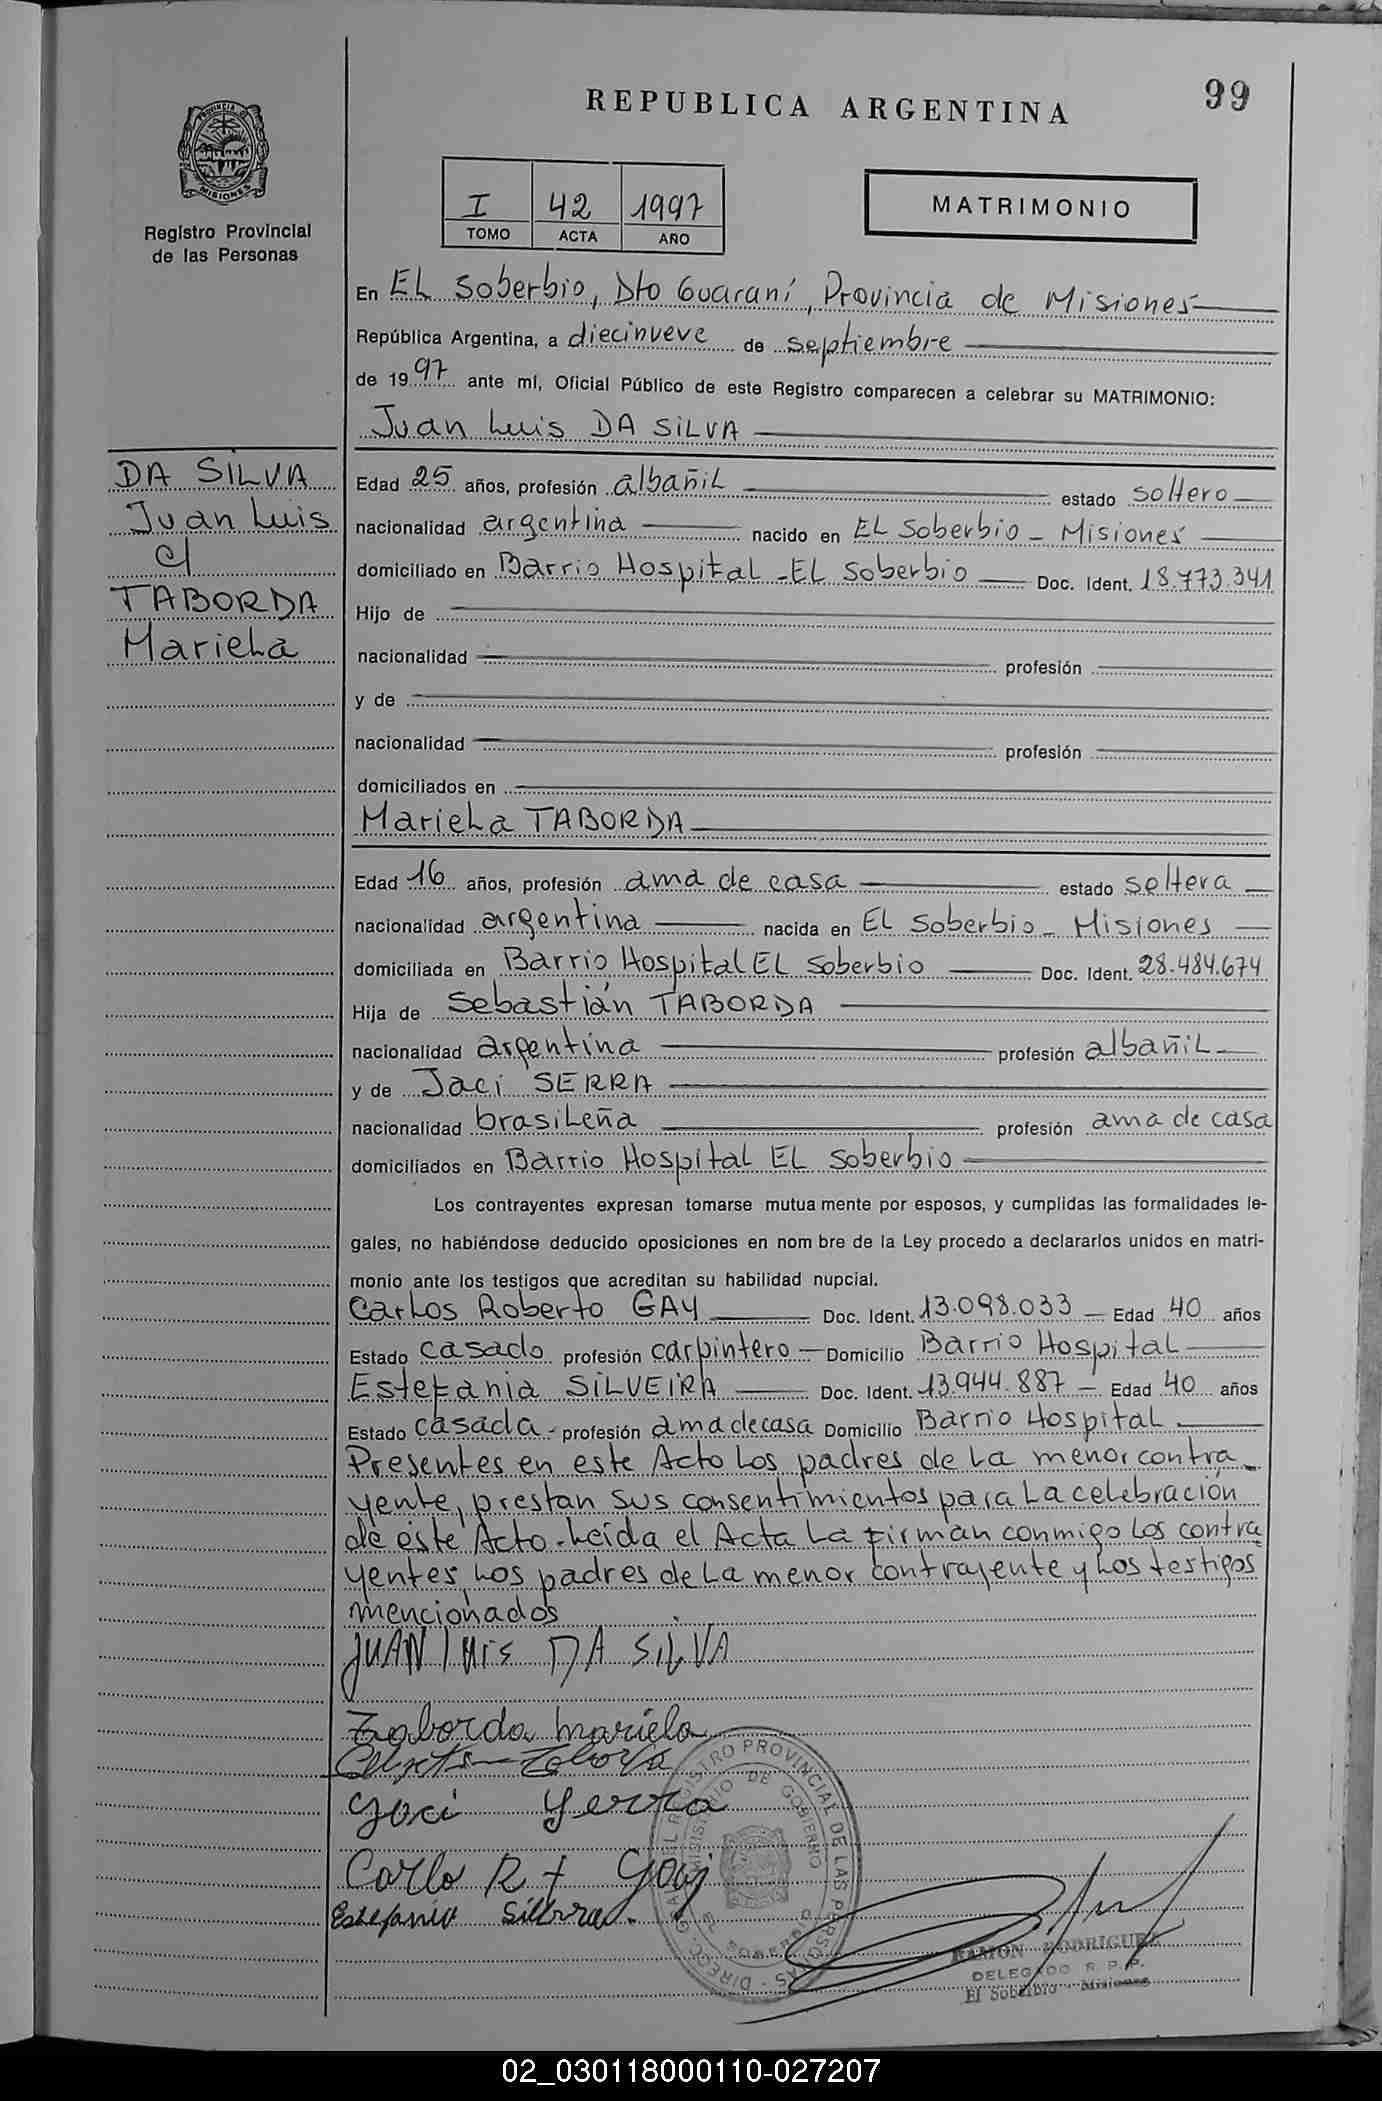 99
REPUBLICA ARGENTINA
PROVINCIA DE MISIONES
Registro Provincial
de las Personas
I 42 1997
TOMO ACTA AÑO
MATRIMONIO
En EL Soberbio, Dto Guaraní, Provincia de Misiones
República Argentina, a diecinueve de septiembre
de 1997 ante mí, Oficial Público de este Registro comparecen a celebrar su MATRIMONIO:
Juan Luis DA SILVA
DA SILVA
Juan Luis
c/
TABORDA
Mariela
Edad 25 años, profesión albañil estado soltero
nacionalidad argentina nacido en EL Soberbio - Misiones
domiciliado en Barrio Hospital - EL Soberbio Doc. Ident. 18.773.341
Hijo de
nacionalidad profesión
y de
nacionalidad profesión
domiciliados en
Mariela TABORDA
Edad 16 años, profesión ama de casa estado soltera
nacionalidad argentina nacida en EL Soberbio - Misiones
domiciliada en Barrio Hospital EL Soberbio Doc. Ident. 28.484.674
Hija de Sebastián TABORDA
nacionalidad argentina profesión albañil
y de Jaci SERRA
nacionalidad brasileña profesión ama de casa
domiciliados en Barrio Hospital EL Soberbio
Los contrayentes expresan tomarse mutua mente por esposos, y cumplidas las formalidades le-
gales, no habiéndose deducido oposiciones en nom bre de la Ley procedo a declararlos unidos en matri-
monio ante los testigos que acreditan su habilidad nupcial.
Carlos Roberto GAY Doc. Ident. 13.098.033 Edad 40 años
Estado casado profesión carpintero Domicilio Barrio Hospital
Estefania SILVEIRA Doc. Ident. 13.944.887 Edad 40 años
Estado casada profesión ama de casa Domicilio Barrio Hospital
Presentes en este Acto los padres de la menor contra-
yente, prestan sus consentimientos para la celebración
de éste Acto. Leída el Acta la firman conmigo los contra
yentes, los padres de la menor contrayente y los testigos
mencionados
JUAN LUIS DA SILVA
Taborda Mariela
Jaci Serra
Carlo R + Gay
Estefania Silbera.
DIRECC. GRAL. DEL REGISTRO PROVINCIAL DE LAS PERSONAS
MINISTERIO DE GOBIERNO
EL SOBERBIO
RAMON RODRIGUEZ
DELEGADO R. P. P.
El Soberbio - Misiones
02_030118000110-027207